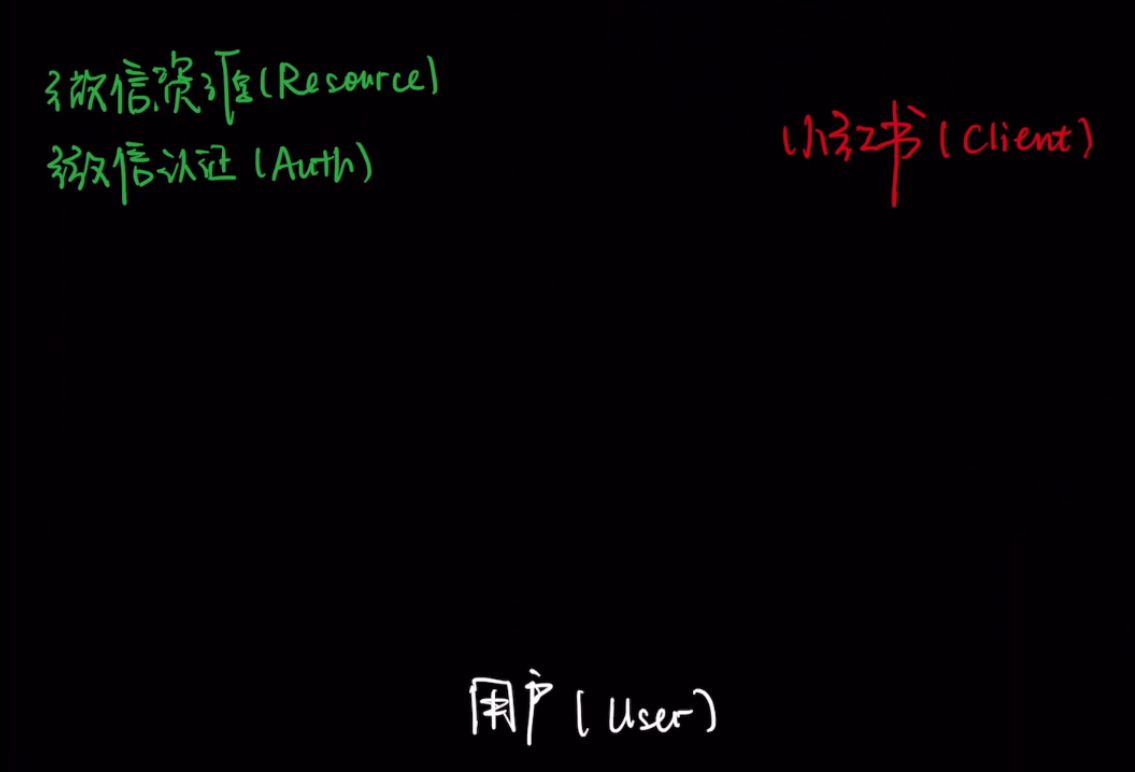 微信资源(Resource)
微信认证(Auth)
小红书(Client)
用户(User)